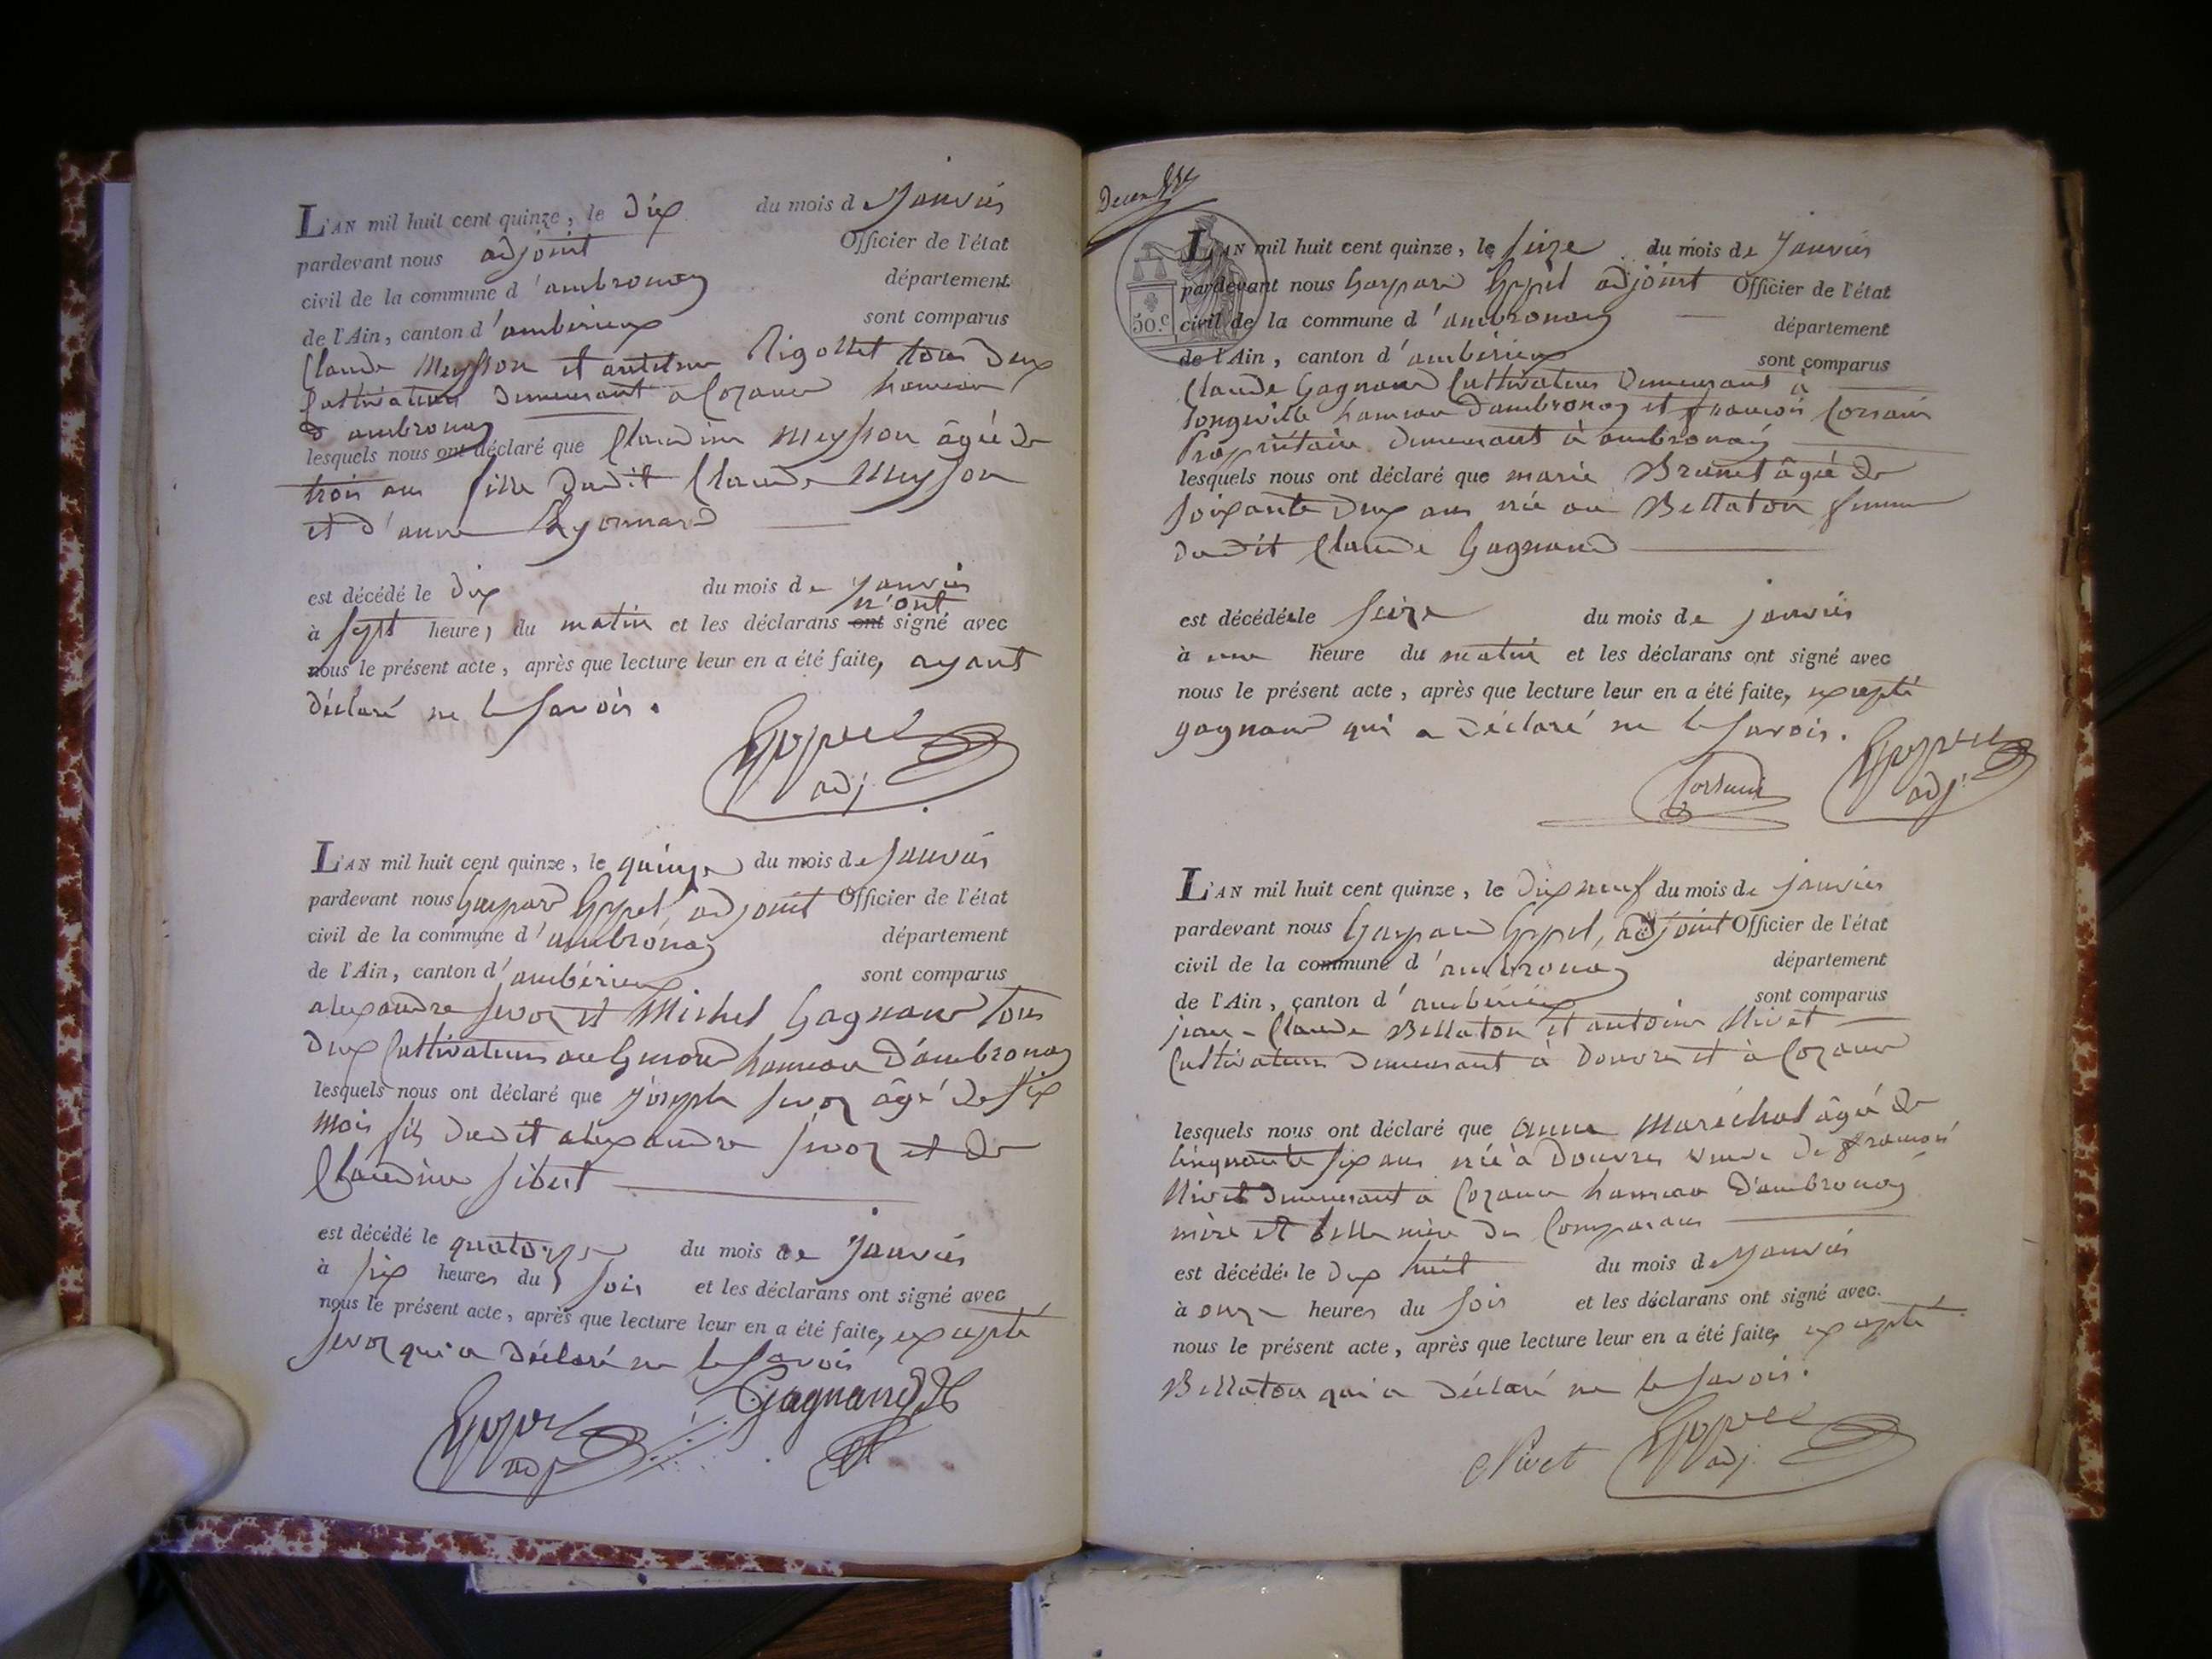 L'AN mil huit cent quinze, le dix du mois de Janvier
pardevant nous adjoint Officier de l'état
civil de la commune d'ambronay département
de l'Ain, canton d'ambérieux sont comparus
Claude Meysson et antelme Rigollet tous deux
Cultivateurs demeurant a Cozance hameau
d'ambronay
lesquels nous ont déclaré que Claudine Meysson âgée de
trois ans fille dudit Claude Meysson
et d'anne
est décédé le dix du mois de Janvier
n'ont
à sept heures du matin et les déclarans ont signé avec
nous le présent acte, après que lecture leur en a été faite, ayant
déclaré ne le savoir.
adj.
L'AN mil huit cent quinze, le quinze du mois de Janvier
pardevant nous Gaspard Goppel, adjoint Officier de l'état
civil de la commune d'ambronay département
de l'Ain, canton d'ambérieux sont comparus
alexandre Sevoz et Michel Gagnand tous
deux Cultivateurs au hameau d'ambronay
lesquels nous ont déclaré que Joseph Sevoz âgé de six
mois fils dudit alexandre Sevoz et de
Claudine Sibert
est décédé le quatorze du mois de Janvier
à six heures du soir et les déclarans ont signé avec
nous le présent acte, après que lecture leur en a été faite, excepté
Sevoz qui a déclaré ne le savoir
Gagnand
adj
50.c
L'AN mil huit cent quinze, le seize du mois de Janvier
pardevant nous Gaspard Goppel adjoint Officier de l'état
civil de la commune d'ambronay département
de l'Ain, canton d'ambérieux sont comparus
Claude Gagnand Cultivateur demeurant à
Longeville hameau d'ambronay et françois Corsain
Propriétaire demeurant à ambronay
lesquels nous ont déclaré que marie Brunet âgée de
soixante deux ans née au Bellaton femme
dudit Claude Gagnand
est décédée le seize du mois de janvier
à une heure du matin et les déclarans ont signé avec
nous le présent acte, après que lecture leur en a été faite, excepté
gagnand qui a déclaré ne le savoir.
adj.
L'AN mil huit cent quinze, le dix neuf du mois de janvier
pardevant nous Gaspard Goppel, adjoint Officier de l'état
civil de la commune d'ambronay département
de l'Ain, canton d'ambérieux sont comparus
jean-Claude Bellaton et antoine Nivet
Cultivateurs demeurant à Douvres et à Cozance
lesquels nous ont déclaré que anne Maréchal âgée de
cinquante six ans née à Douvres veuve de françois
Nivet demeurant a Cozance hameau d'ambronay
mère et belle mère des Comparans
est décédée le dix huit du mois de Janvier
à onze heures du soir et les déclarans ont signé avec
nous le présent acte, après que lecture leur en a été faite, excepté
Bellaton qui a déclaré ne le savoir.
Nivet
adj.